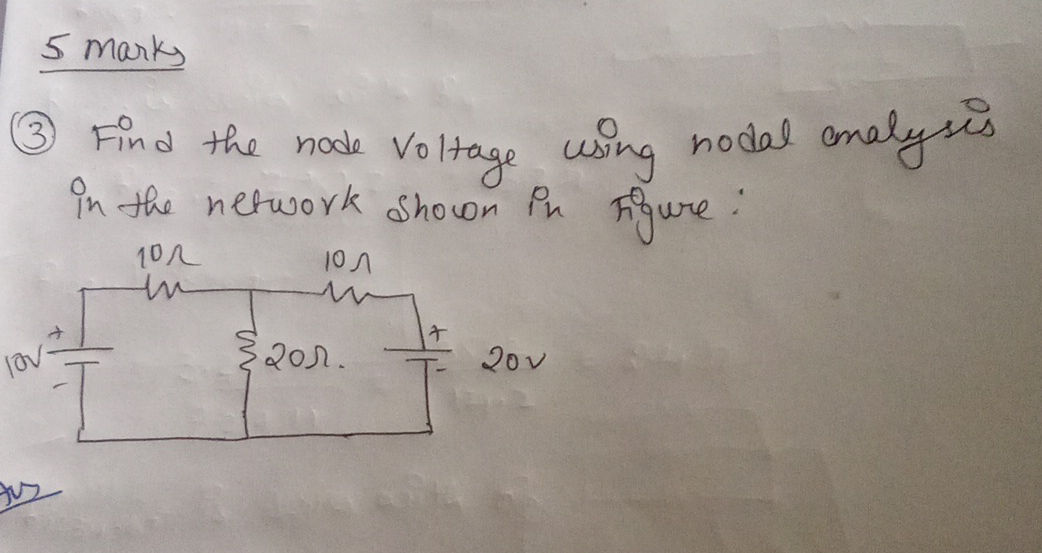 5 marks
③ Find the node voltage using nodal analysis
in the network shown in Figure :
10Ω 10Ω
+ +
10V 20Ω. 20V
- -
Ans